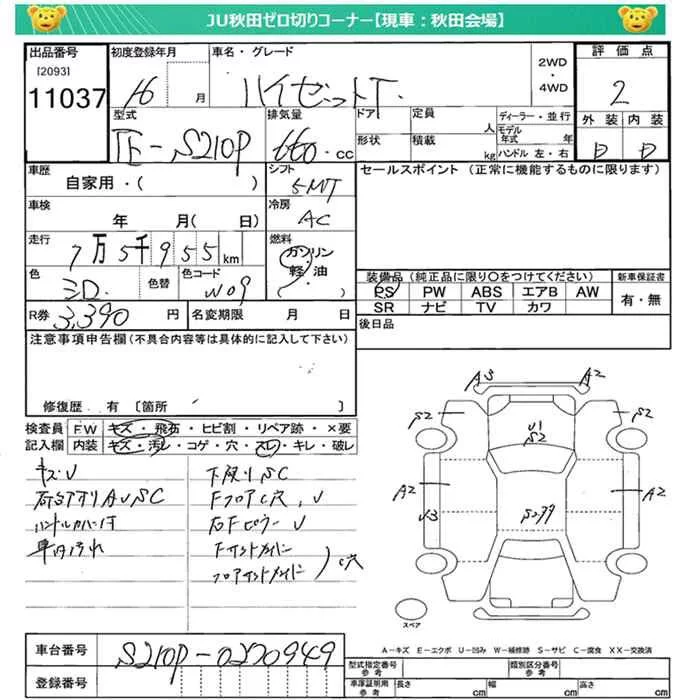 JU秋田ゼロ切りコーナー【現車：秋田会場】
出品番号 初度登録年月 車名・グレード 2WD・4WD 評価点
[2093]
11037 16 月 ハイゼットT. 2
型式 排気量 ドア 定員 人 ディーラー・並行 外装 内装
TE-S210P 660.cc 形状 積載 kg モデル年式 年 ハンドル 左・右 D D
車歴 シフト セールスポイント (正常に機能するものに限ります)
自家用・( ) 5MT
車検 冷房
年 月( 日) AC
走行 燃料
7万5千955km ガソリン
軽・油
( )
色 色替 色コード 装備品 (純正品に限り○をつけてください) 新車保証書
シロ W09 PS PW ABS エアB AW 有・無
SR ナビ TV カワ
R券 3,390 円 名変期限 月 日 後日品
注意事項申告欄(不具合内容等は具体的に記入して下さい)
修復歴 有 〔箇所 〕
検査員 F.W キズ・飛石・ヒビ割・リペア跡・×要
記入欄 内装 キズ・汚レ・コゲ・穴・スレ・キレ・破レ
キズU 下廻りSC
AUSC FフロアC穴、U
ハンドルカバー付 右Fピラー U
車内汚れ Fサイドメンバー
フロアサイドメンバー ) 穴
AS A2
S2 U1 S2 S2
A2 A2
U3 S299
スペア
A－キズ E－エクボ U－凹み W－補修跡 S－サビ C－腐食 XX－交換済
車台番号 S210P-0220949
登録番号
型式指定番号 参考 類別区分番号 参考
車庫証明用 参考 長さ cm 幅 cm 高さ cm